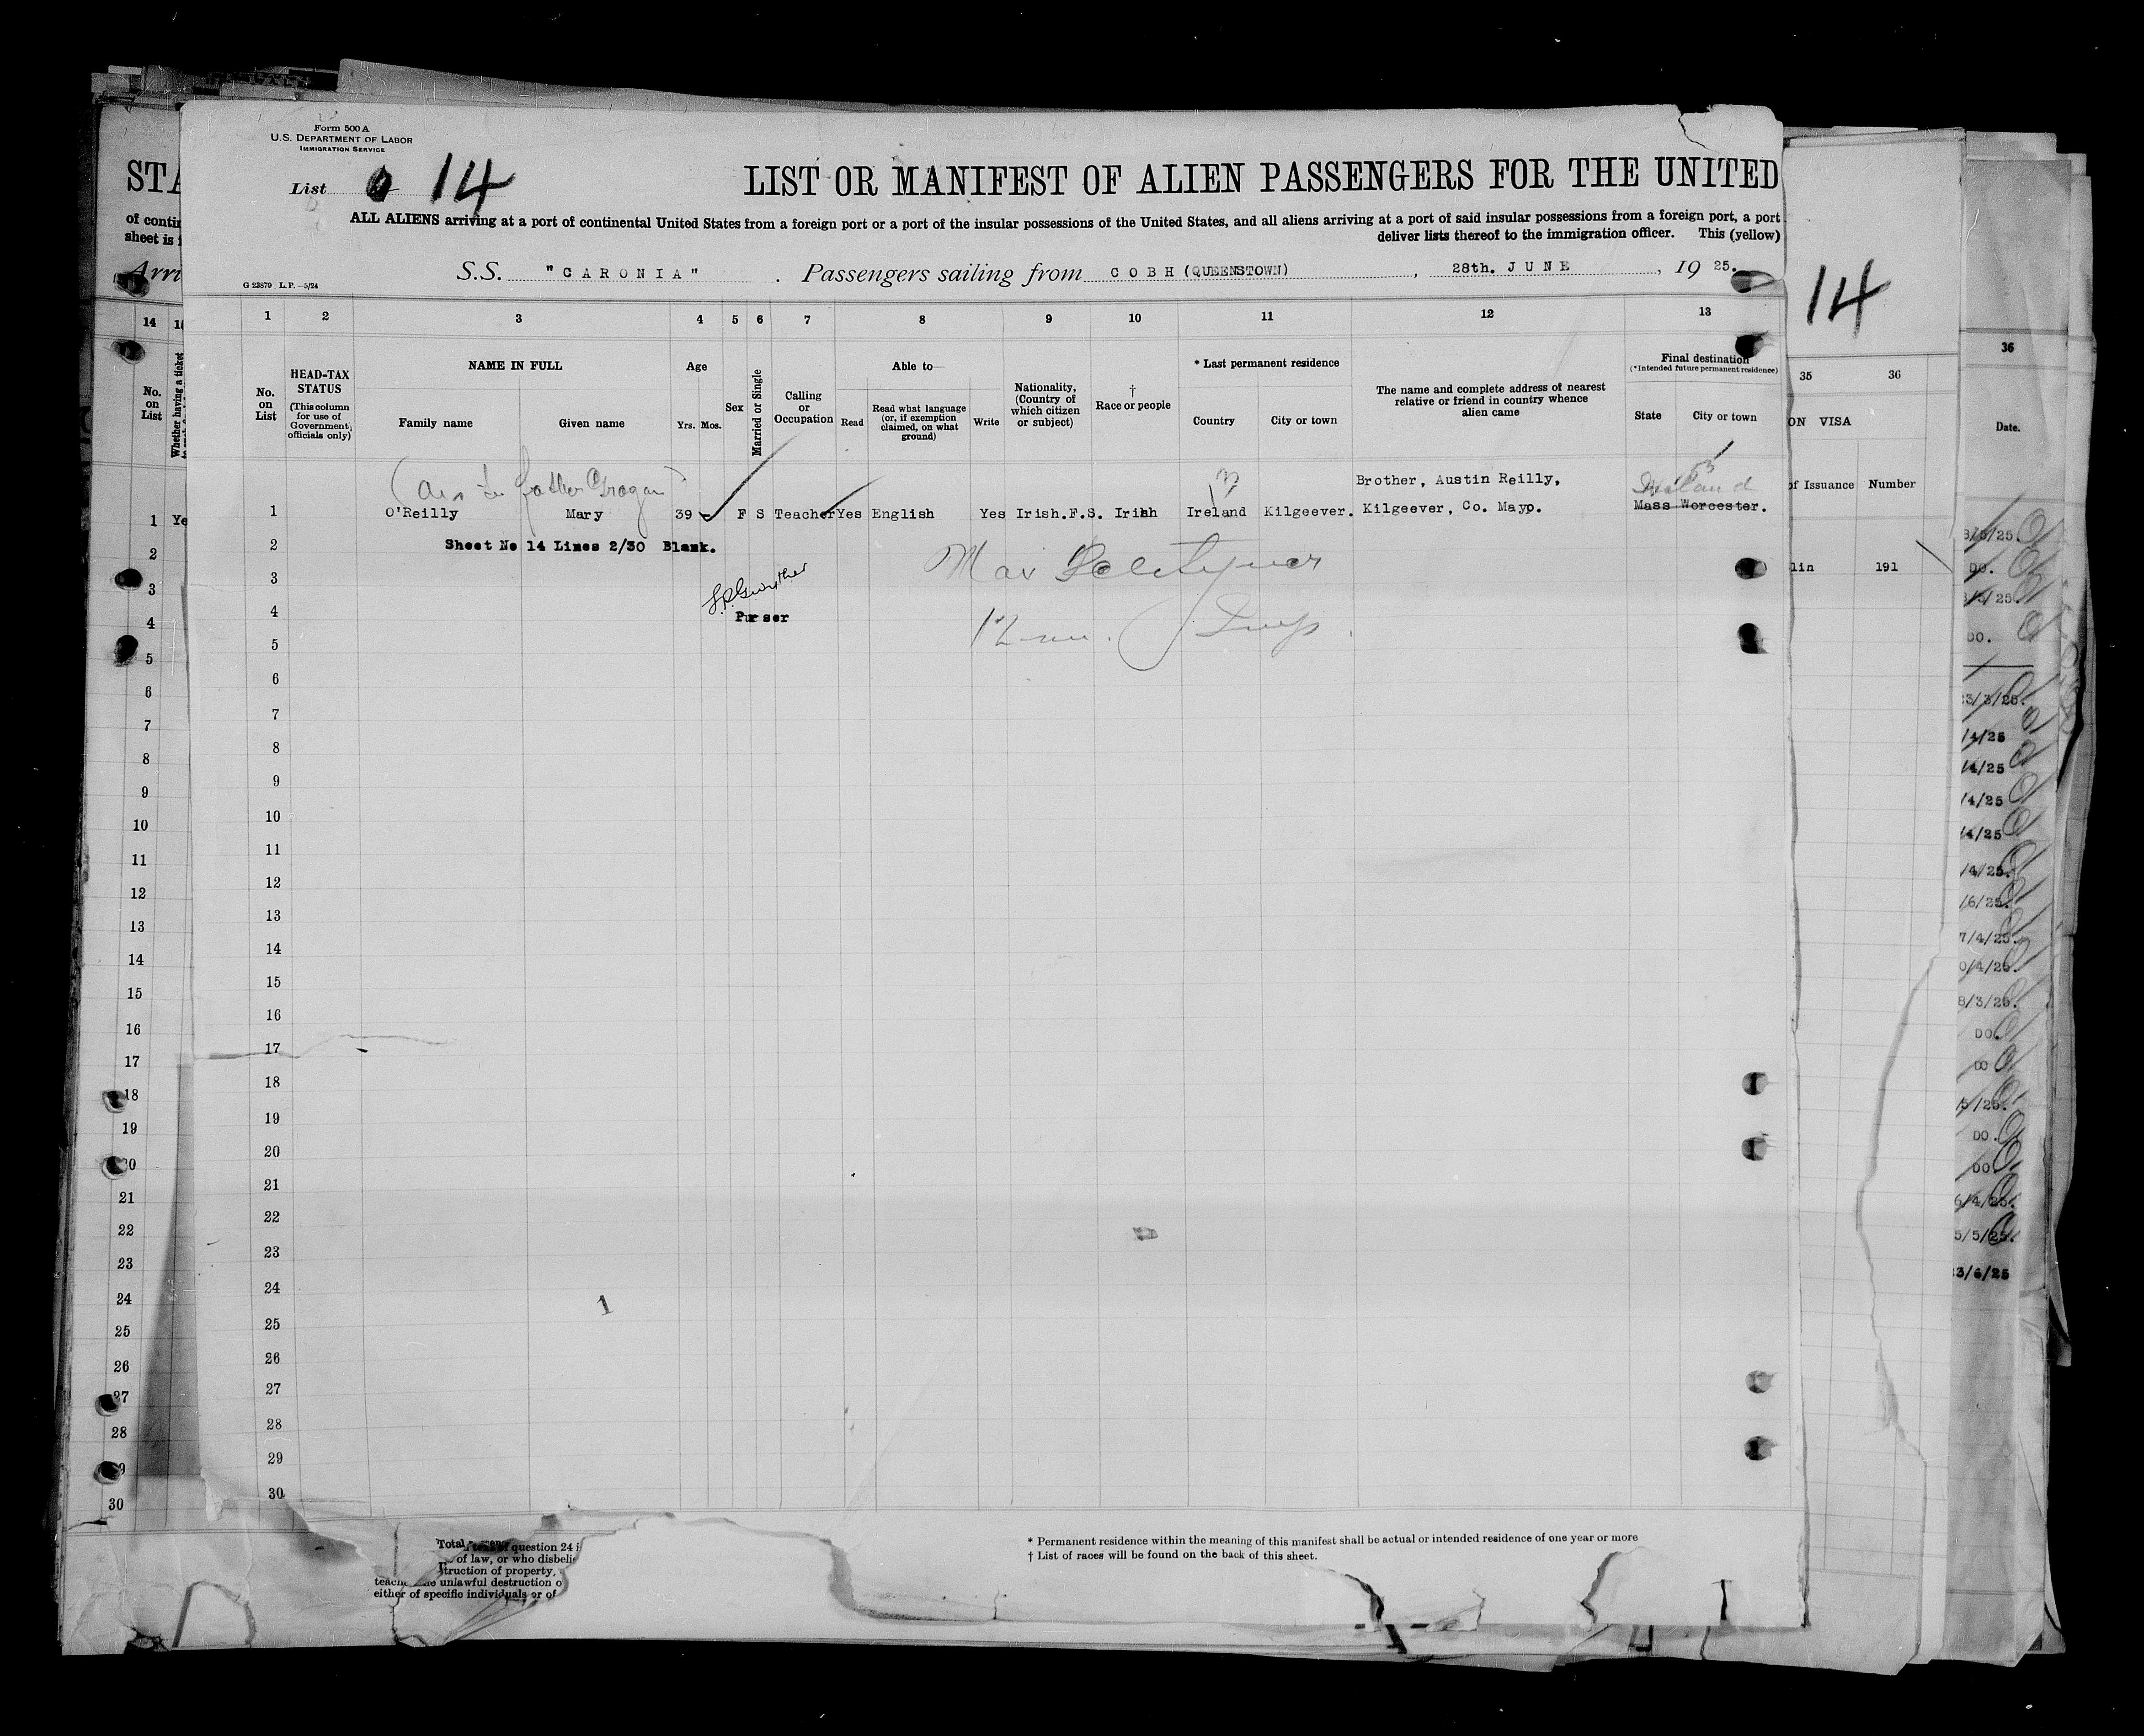 Form 500 A
U.S. DEPARTMENT OF LABOR
IMMIGRATION SERVICE
List 14
LIST OR MANIFEST OF ALIEN PASSENGERS FOR THE UNITED
ALL ALIENS arriving at a port of continental United States from a foreign port or a port of the insular possessions of the United States, and all aliens arriving at a port of said insular possessions from a foreign port, a port
deliver lists thereof to the immigration officer. This (yellow)
S.S. "CARONIA" . Passengers sailing from COBH (QUEENSTOWN) , 28th. JUNE , 19 25.
G 23879 L.P.—5/24
1 2 3 4 5 6 7 8 9 10 11 12 13
No. on List
HEAD-TAX STATUS
(This column for use of Government officials only)
NAME IN FULL
Family name Given name
Age
Yrs. Mos.
Sex
Married or Single
Calling or Occupation
Able to—
Read
Read what language (or, if exemption claimed, on what ground)
Write
Nationality, (Country of which citizen or subject)
† Race or people
* Last permanent residence
Country City or town
The name and complete address of nearest relative or friend in country whence alien came
Final destination
(*Intended future permanent residence)
State City or town
Brother, Austin Reilly,
1 O'Reilly Mary 39 F S Teacher Yes English Yes Irish.F.S. Irish Ireland Kilgeever. Kilgeever, Co. Mayp. Mass Worcester.
2 Sheet No 14 Lines 2/30 Blank.
3
4 Purser
5
6
7
8
9
10
11
12
13
14
15
16
17
18
19
20
21
22
23
24
1
25
26
27
28
29
30
* Permanent residence within the meaning of this manifest shall be actual or intended residence of one year or more
† List of races will be found on the back of this sheet.
Total
question 24 i
of law, or who disbeli
truction of property,
unlawful destruction o
either of specific individuals or of
STA
of contin
sheet is f
Arri
14
No. on List
Whether having a ticket
1 Ye
2
3
4
5
6
7
8
9
10
11
12
13
14
15
16
17
18
19
20
21
22
23
24
25
26
27
28
29
30
14
35 36
ON VISA
of Issuance Number
lin 191
36
Date.
3/5/25.
DO.
3/5/25.
DO.
23/3/25.
/4/25
/4/25
/4/25
/4/25
/4/25.
/6/25.
7/4/25.
0/4/25.
8/3/25.
DO.
DO
/5/25.
DO.
DO.
6/4/25.
5/5/25.
3/6/25